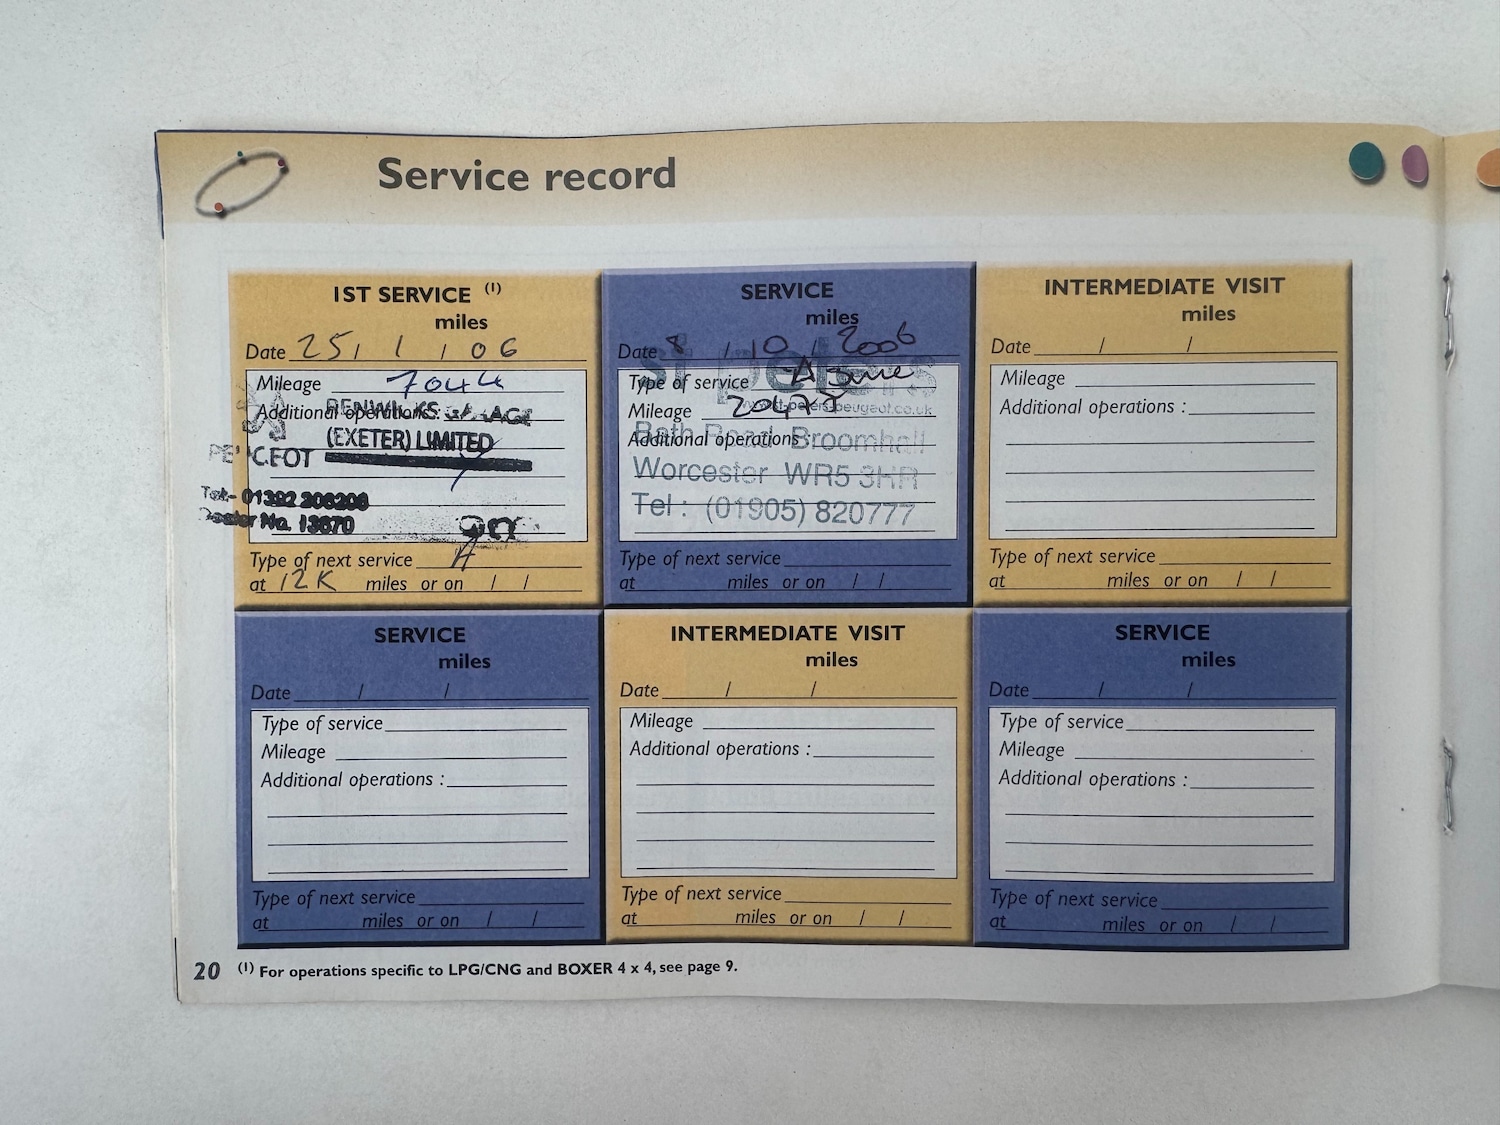 Service record
1ST SERVICE (1)
miles
Date 25 / 1 / 06
Mileage 7044
Additional operations:
(EXETER) LIMITED
Tel:- 01392 208208
No. 13670
Type of next service A
at 12K miles or on / /
SERVICE
miles
Date 8 / 10 / 2006
st peters
Type of service A
Mileage
www.st-peters-peugeot.co.uk
Additional operations:
Bath Road Broomhall
Worcester WR5 3HR
Tel : (01905) 820777
Type of next service
at miles or on / /
INTERMEDIATE VISIT
miles
Date / /
Mileage
Additional operations :
Type of next service
at miles or on / /
SERVICE
miles
Date / /
Type of service
Mileage
Additional operations :
Type of next service
at miles or on / /
INTERMEDIATE VISIT
miles
Date / /
Mileage
Additional operations :
Type of next service
at miles or on / /
SERVICE
miles
Date / /
Type of service
Mileage
Additional operations :
Type of next service
at miles or on / /
20 (1) For operations specific to LPG/CNG and BOXER 4 x 4, see page 9.